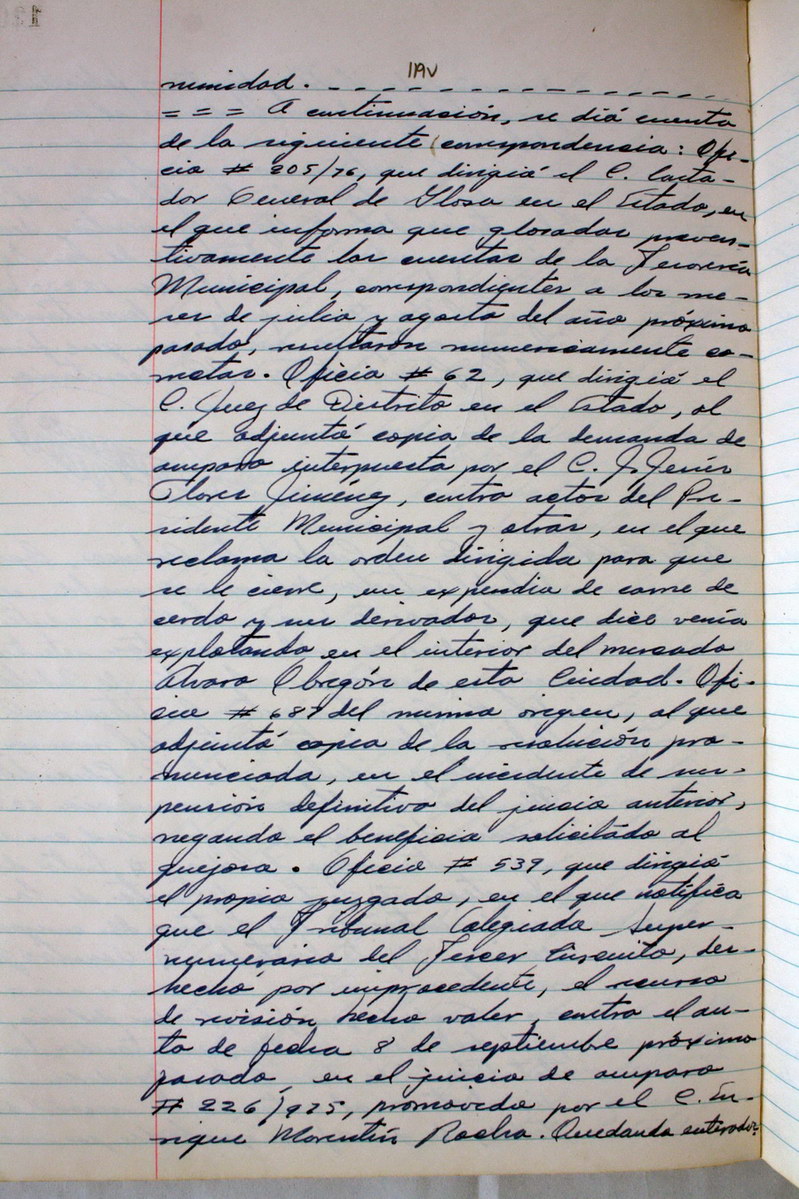 11AV
nimidad. - - - - - - - - - - - - - - -
= = = A continuación, se dió cuenta
de la siguiente correspondencia: Ofi-
cio # 205/76, que dirigió el C. Conta-
dor General de Glosa en el Estado, en
el que informa que glosadas preven-
tivamente las cuentas de la Tesorería
Municipal, correspondientes a los me-
ses de julio y agosto del año próximo
pasado, resultaron numericamente co-
rrectas. Oficio # 62, que dirigió el
C. Juez de Distrito en el Estado, al
que adjuntó copia de la demanda de
amparo interpuesta por el C. J. Jesús
Flores Jiménez, contra actos del Pre-
sidente Municipal y otras, en el que
reclama la orden dirigida para que
se le cierre, un expendio de carne de
cerdo y sus derivados, que dice venía
explotando en el interior del mercado
Alvaro Obregón de esta Ciudad. Ofi-
cio # 687 del mismo origen, al que
adjuntó copia de la resolución pro-
nunciada, en el incidente de sus-
pensión definitiva del juicio anterior,
negando el beneficio solicitado al
quejoso. Oficio # 539, que dirigió
el propio juzgado, en el que notifica
que el Tribunal Colegiado Super-
numerario del Tercer Circuito, des-
hechó por improcedente, el recurso
de revisión hecho valer, contra el au-
to de fecha 8 de septiembre próximo
pasado, en el juicio de amparo
# 226/975, promovido por el C. En-
rique Morentín Rocha. Quedando enterados